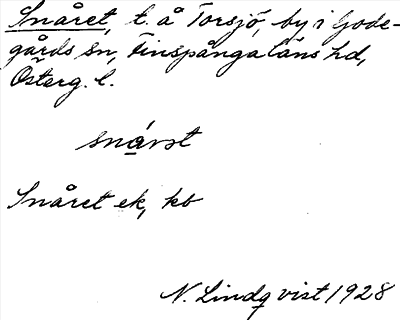 Snåret, t. å Torsjö, by i Gode-
gårds sn, Finspånga läns hd,
Österg. l.
Snåret ek, kb
N. Lindqvist 1928